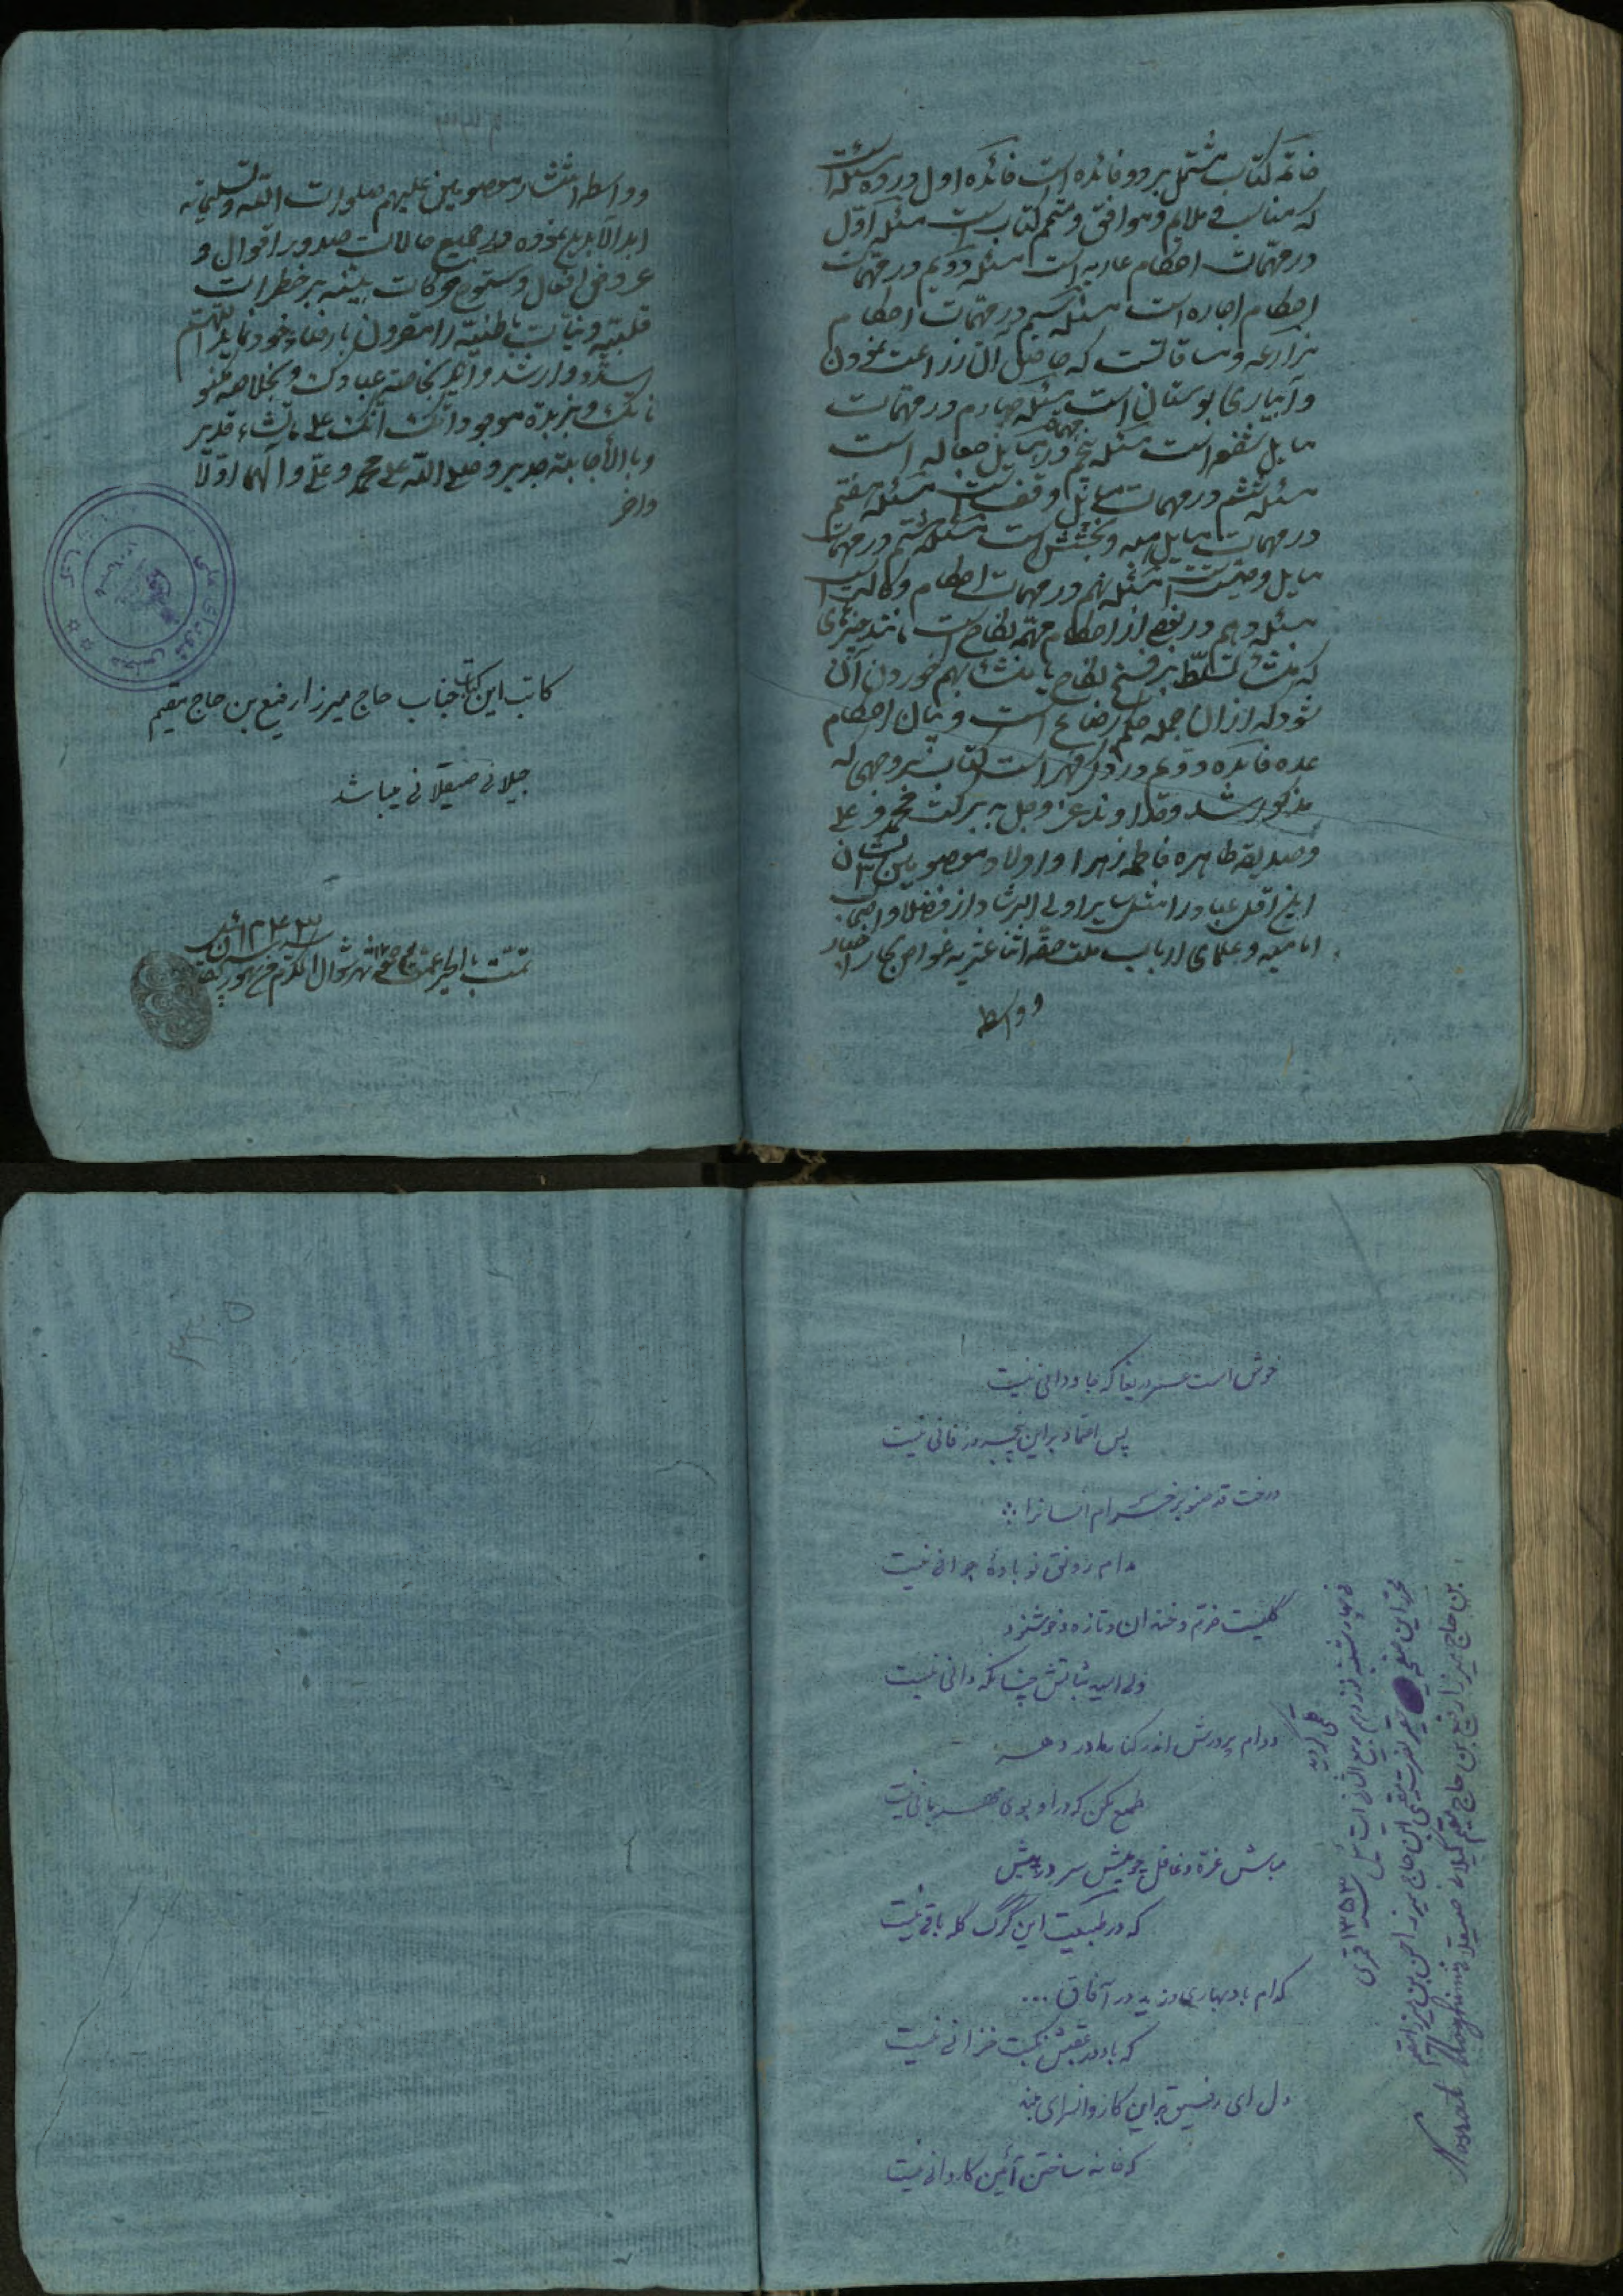 خاتمه کتاب مشتمل بر دو فائده است فائده اول در ده مسئله است
که مناسب و ملایم و موافق و متمم کتاب است مسئله اول
در مهمات احکام عاریه است مسئله دویم در مهمات
احکام اجاره است مسئله سیم در مهمات احکام
مزارعه و مساقاتست که حاصل آن زراعت نمودن
و آبیاری بوستان است مسئله چهارم در مهمات
مسایل شفعه است مسئله پنجم در مهمات مسایل جعاله است
مسئله ششم در مهمات مسایل وقف است مسئله هفتم
در مهمات مسایل هبه و بخشش است مسئله هشتم در مهمات
مسایل وصیت است مسئله نهم در مهمات احکام وکالت است
مسئله دهم در بعضی از احکام مهمه نکاح است مانند چیزهای
که منشأ تسلط بر فسخ نکاح یا منشأ بهم خوردن آن
شود که از آن جمله حکم رضاع است و بیان احکام
عده فائده دویم در ذکر فهرست کتاب بنوعی که
مذکور شد و خداوند عز و جل به برکت محمد و علی
و صدیقه طاهره فاطمه زهرا و اولاد معصومین ایشان
این اقل عباد را مثل سایر اولی الرشاد از فضلا و اصحاب
امامیه و علمای ارباب ملت حقه اثنا عشریه غواص بحار اخبار
و واسطه
و واسطه اثنا عشر معصومین علیهم صلوات الله و تسلیماته
ابد الآبدین نموده و در جمیع حالات صدور اقوال و
عروض افعال و سنوح حرکات بینیه بر خطرات
قلبیه و نیات باطنیه را مقرون بارضاء خود نماید اللهم
سدد وارشد واهد بخاصة عبادک و بخلاصه صفو
تک و بزبدة موجوداتک انک علی ما تشاء قدیر
وبالأجابة جدیر وصلی الله علی محمد وعلی وآلهما اولا
واخر
کاتب این کتاب جناب حاج میرزا رفیع بن حاج مقیم
جیلانی صیقلانی میباشد
سنه ۱۲۴۳
تمت بالخیر شهر شوال المکرم
خوش است عمر دریغا که جاودانی نیست
پس اعتماد بر این پنجروز فانی نیست
درخت قد صنوبر خرام انسانرا
مدام رونق نوباوهٔ جوانی نیست
گلیست خرم و خندان و تازه و خوشبو
ولی امید ثباتش چنانکه دانی نیست
دوام پرورش اندر کنار مادر دهر
طمع مکن که در او بوی مهربانی نیست
مباش غره و غافل چو میش سر در پیش
که در طبیعت این گرگ گله بانی نیست
کدام باد بهاری وزید در آفاق ...
که باز در عقبش نکبت خزانی نیست
دل ای رفیق بر این کاروانسرای مبند
که خانه ساختن آئین کاروانی نیست
بن حاج میرزا رفیع بن حاج مقیم گیلانی صیقلانی
محرر این صفحه نصرت مقیمی ابن حاج میرزا حسن بن میرزا مقیم
چهارشنبه نوزدهم ربیع الثانی ۱۳۵۳ قمری
قلمی گردید
Nosrat Moghimi